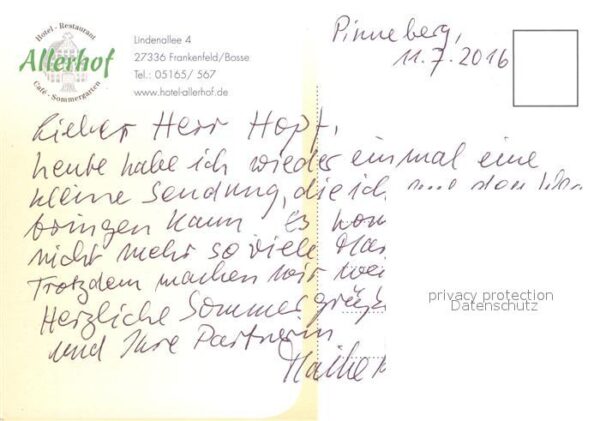 Hotel - Restaurant
Allerhof
Café - Sommergarten
Lindenallee 4
27336 Frankenfeld/Bosse
Tel.: 05165/ 567
www.hotel-allerhof.de
Pinneberg,
11.7.2016
Lieber Herr Hopf,
heute habe ich wieder einmal eine
kleine Sendung, die ich
bringen kann Es
nicht mehr so viele
Trotzdem machen wir
Herzliche Sommergrüße
und Ihre Partnerin
privacy protection
Datenschutz